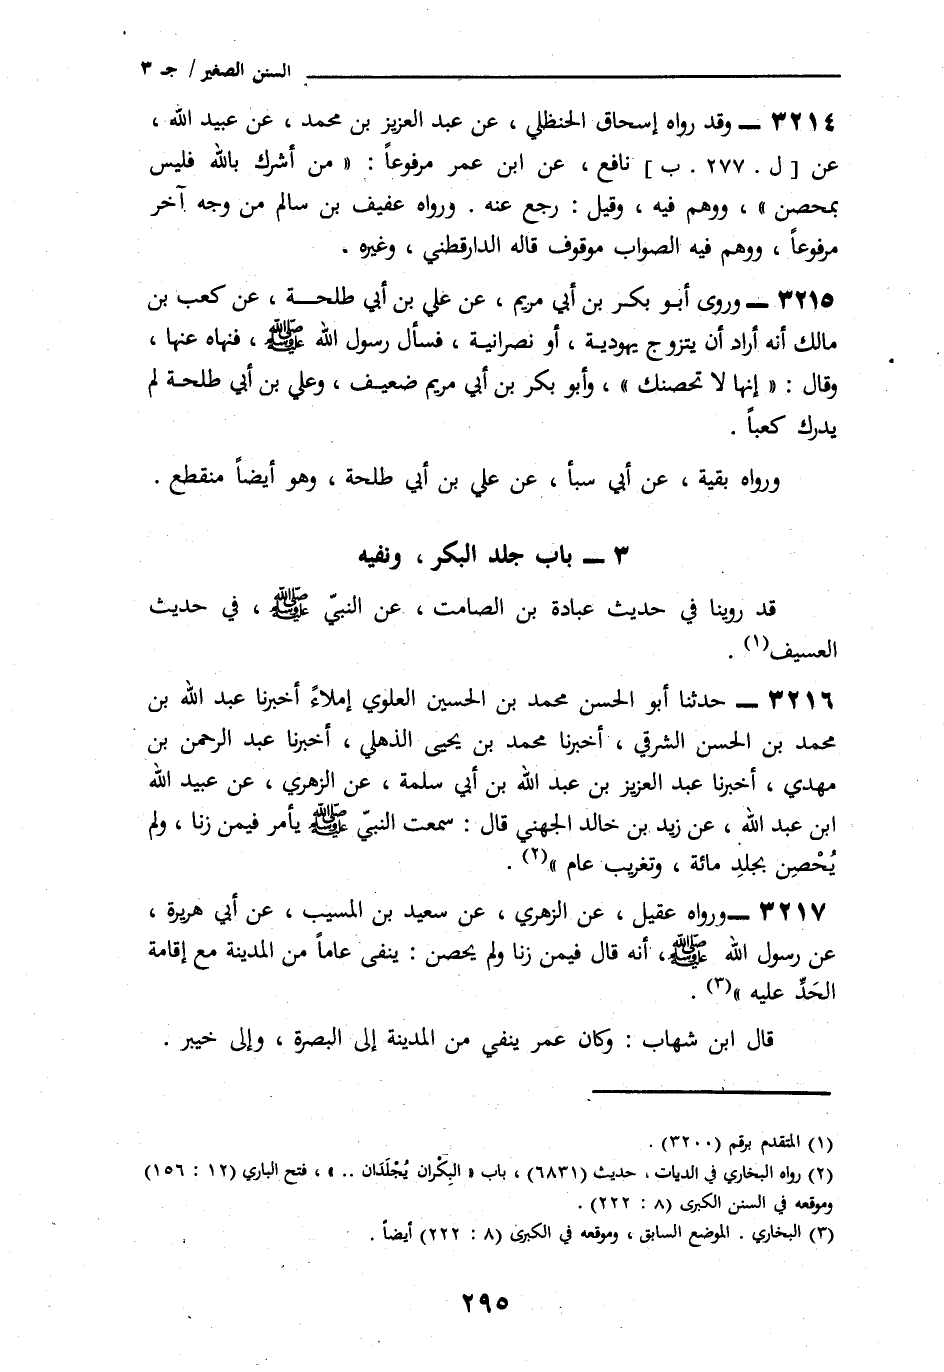 السنن الصغير / جـ ٣
٣٢١٤ ــ وقد رواه إسحاق الحنظلي ، عن عبد العزيز بن محمد ، عن عبيد الله ،
عن [ ل . ٢٧٧ . ب ] نافع ، عن ابن عمر مرفوعاً : « من أشرك بالله فليس
بمحصن » ، ووهم فيه ، وقيل : رجع عنه . ورواه عفيف بن سالم من وجه آخر
مرفوعاً ، ووهم فيه الصواب موقوف قاله الدارقطني ، وغيره .
٣٢١٥ ــ وروى أبـو بكـر بن أبي مريم ، عن علي بن أبي طلحــة ، عن كعب بن
مالك أنه أراد أن يتزوج يهوديـة ، أو نصرانيـة ، فسأل رسول الله ﷺ ، فنهاه عنها ،
وقال : « إنها لا تحصنك » ، وأبو بكر بن أبي مريم ضعيـف ، وعلي بن أبي طلحـة لم
يدرك كعباً .
ورواه بقية ، عن أبي سبأ ، عن علي بن أبي طلحة ، وهو أيضاً منقطع .
٣ ــ باب جلد البكر ، ونفيه
قد روينا في حديث عبادة بن الصامت ، عن النبيّ ﷺ ، في حديث
العسيف(١) .
٣٢١٦ ــ حدثنا أبو الحسن محمد بن الحسين العلوي إملاءً أخبرنا عبد الله بن
محمد بن الحسن الشرقي ، أخبرنا محمد بن يحيى الذهلي ، أخبرنا عبد الرحمن بن
مهدي ، أخبرنا عبد العزيز بن عبد الله بن أبي سلمة ، عن الزهري ، عن عبيد الله
ابن عبد الله ، عن زيد بن خالد الجهني قال : سمعت النبيّ ﷺ يأمر فيمن زنا ، ولم
يُحْصِن بجلدِ مائة ، وتغريب عام »(٢) .
٣٢١٧ ــ ورواه عقيل ، عن الزهري ، عن سعيد بن المسيب ، عن أبي هريرة ،
عن رسول الله ﷺ، أنه قال فيمن زنا ولم يحصن : ينفى عاماً من المدينة مع إقامة
الحَدِّ عليه »(٣) .
قال ابن شهاب : وكان عمر ينفي من المدينة إلى البصرة ، وإلى خيبر .
(١) المتقدم برقم (٣٢٠٠) .
(٢) رواه البخاري في الديات ، حديث (٦٨٣١) ، باب « البِكْران يُجْلَدَان .. » ، فتح الباري (١٢ : ١٥٦)
وموقعه في السنن الكبرى (٨ : ٢٢٢) .
(٣) البخاري . الموضع السابق ، وموقعه في الكبرى (٨ : ٢٢٢) أيضاً .
٢٩٥